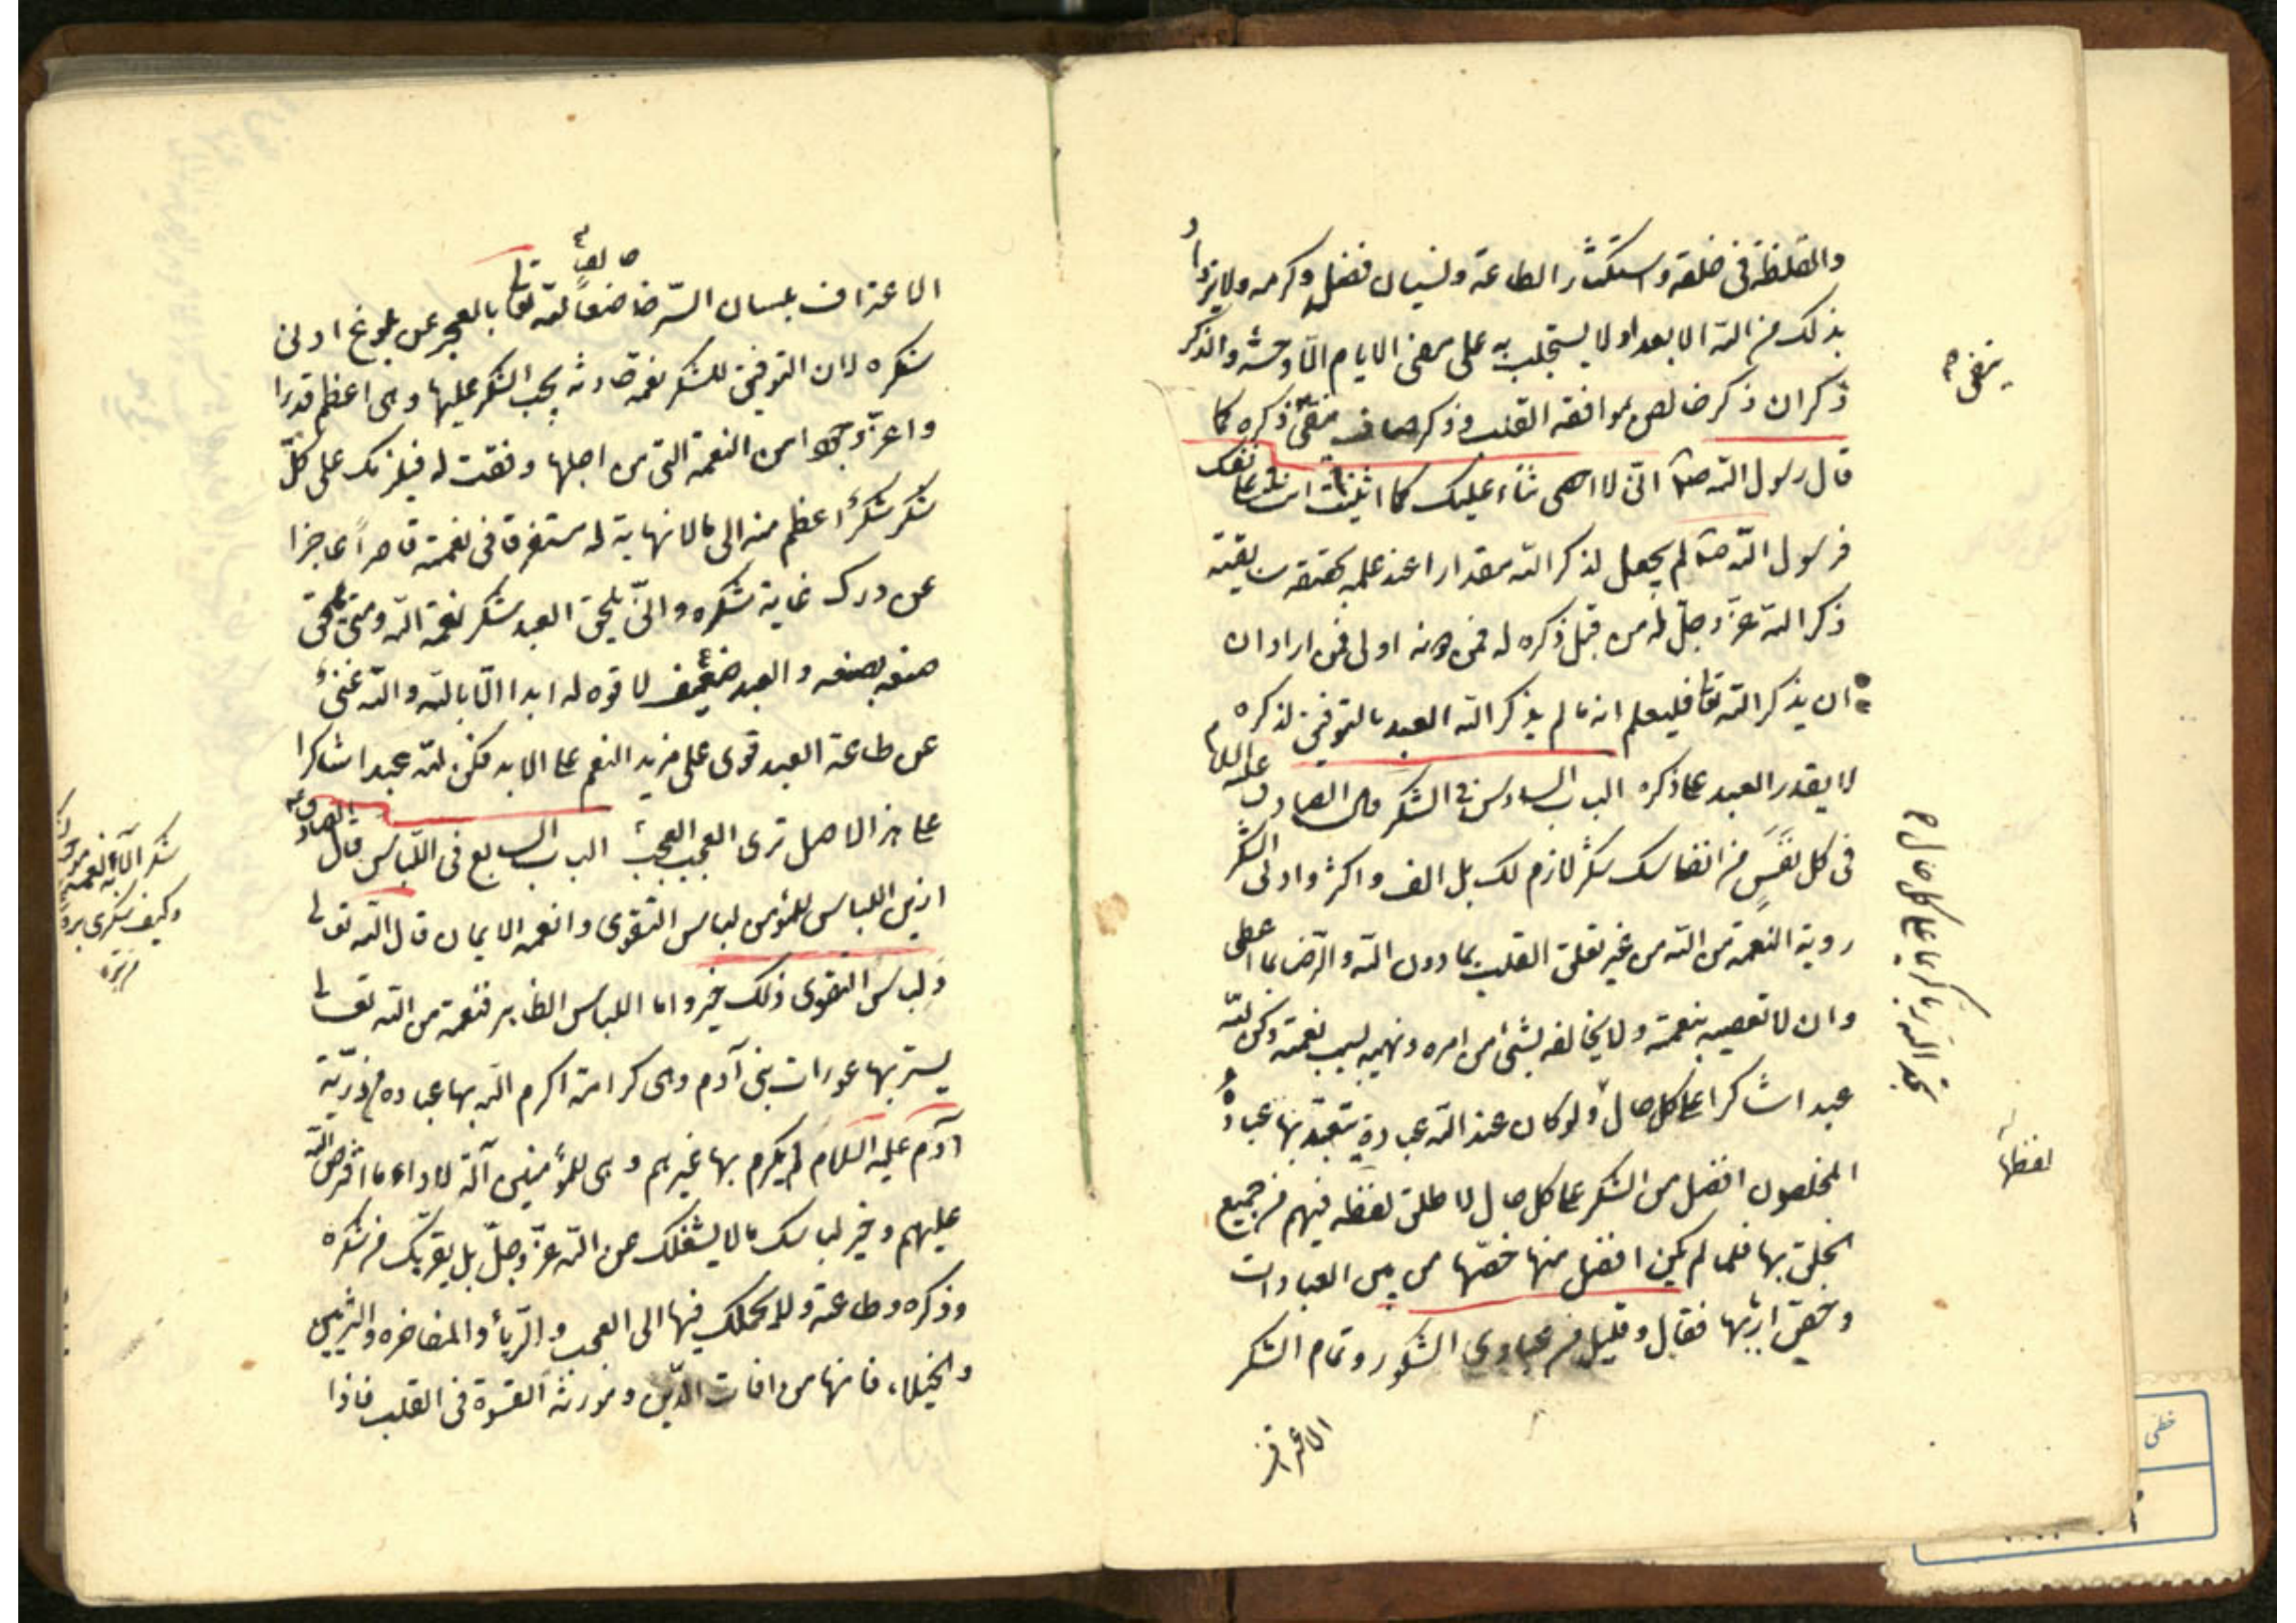 والغلظة فى خلقه واستكثار الطاعة ونسيان فضله وكرمه ولا يزداد
بذلك من الله الا بعدا ولا يستجلب به على مضى الايام الا وحشة والذكر
ذكران ذكر خالص بموافقة القلب وذكر صاف ينفى ذكره كما
قال رسول الله انى لا احصى ثناء عليك كما اثنيت انت على نفسك
فرسول الله لم يجعل لذكر الله مقدارا عند علمه بحقيقة سابقة
ذكر الله عز وجل له من قبل ذكره له فمن دونه اولى فمن اراد ان
ان يذكر الله تعا فليعلم انه ما لم يذكر الله العبد بالتوفيق لذكره
لا يقدر العبد على ذكره الباب السادس فى الشكر قال الصادق عليه السلام
فى كل نفس من انفاسك شكر لازم لك بل الف واكثر وادنى الشكر
روية النعمة من الله من غير تعلق القلب بما دون الله والرضا بما اعطى
وان لا تعصيه بنعمته ولا يخالفه بشئ من امره ونهيه بسبب نعمته وكن لله
عبدا شاكرا على كل حال ولو كان عند الله عبادة يتعبد بها عباده
المخلصون افضل من الشكر على كل حال لا طلق لفظه فيهم من جميع
الخلق بها فلما لم يكن افضل منها خصها من بين العبادات
وخص اربابها فقال وقليل من عبادى الشكور وتمام الشكر
الاعتراف
ينفى
لفظها
الاعتراف بلسان السر خاضعا لله تعا بالعجز عن بلوغ ادنى
شكره لان التوفيق للشكر نعمة حادثة يجب الشكر عليها وهى اعظم قدرا
واعز وجودا من النعمة التى من اجلها وفقت له فيلزمك على كل
شكر شكرا اعظم منه الى ما لا نهاية له مستغرقا فى نعمته قاصرا عاجزا
عن درك غاية شكره وانى يلحق العبد شكر نعمة الله ومتى يلحق
صنعه بصنعه والعبد ضعيف لا قوه له ابدا الا بالله والله غنى
عن طاعة العبد قوى على مزيد النعم على الابد فكن لله عبدا شاكرا
على هذا الاصل ترى العجب العجب الباب السابع فى اللباس قال الصادق
ازين اللباس للمؤمن لباس التقوى وانعمه الايمان قال الله تعالى
ولباس التقوى ذلك خير واما اللباس الظاهر فنعمة من الله تعالى
يستر بها عورات بنى آدم وهى كرامة اكرم الله بها عباده من ذرية
آدم عليه السلام لم يكرم بها غيرهم وهى للمؤمنين آلة لاداء ما افترض الله
عليهم وخير لباسك ما لا يشغلك عن الله عز وجل بل يقربك من شكره
وذكره وطاعته ولا يحملك فيها الى العجب والرياء والمفاخره والتزيين
والخيلاء فانها من افات الدين ومورثة القسوة فى القلب فاذا